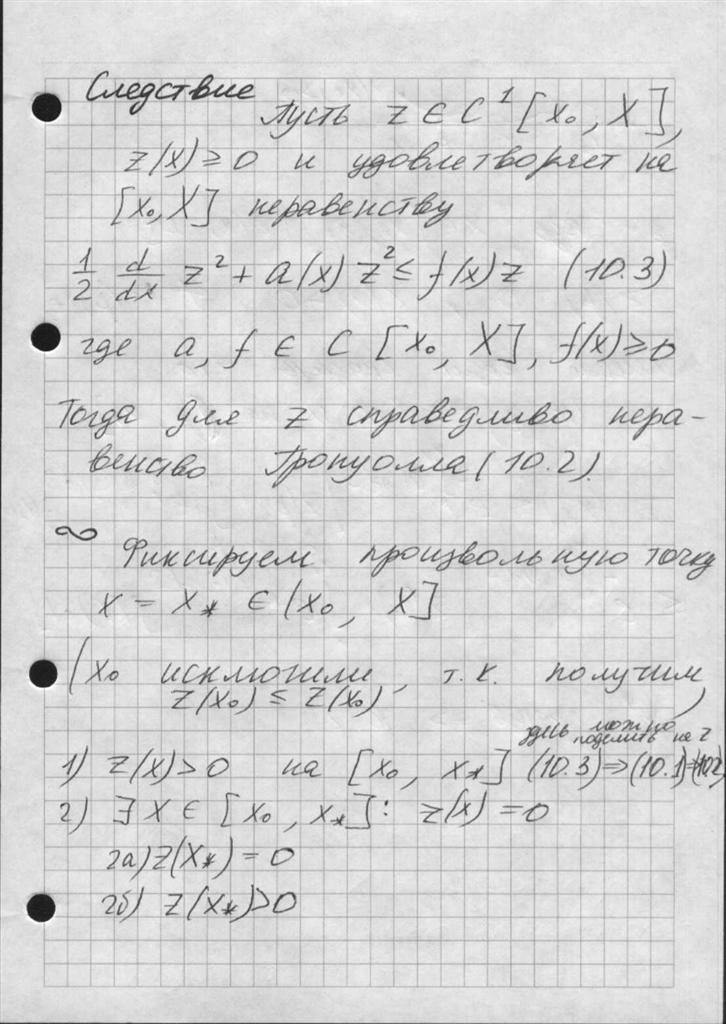 Следствие
Пусть z ∈ C¹ [x₀, X],
z(x) ≥ 0 и удовлетворяет на
[x₀, X] неравенству
1/2 d/dx z² + a(x) z² ≤ f(x) z (10.3)
где a, f ∈ C [x₀, X], f(x) ≥ 0
Тогда для z справедливо нера-
венство Гронуолла (10.2).
Фиксируем произвольную точку
x = x* ∈ (x₀, X]
(x₀ исключили, т.к. получим
z(x₀) ≤ z(x₀))
здесь можно
поделить на z
1) z(x) > 0 на [x₀, x*] (10.3) ⇒ (10.1) ⇒ (10.2)
2) ∃ x ∈ [x₀, x*]: z(x) = 0
2а) z(x*) = 0
2б) z(x*) > 0